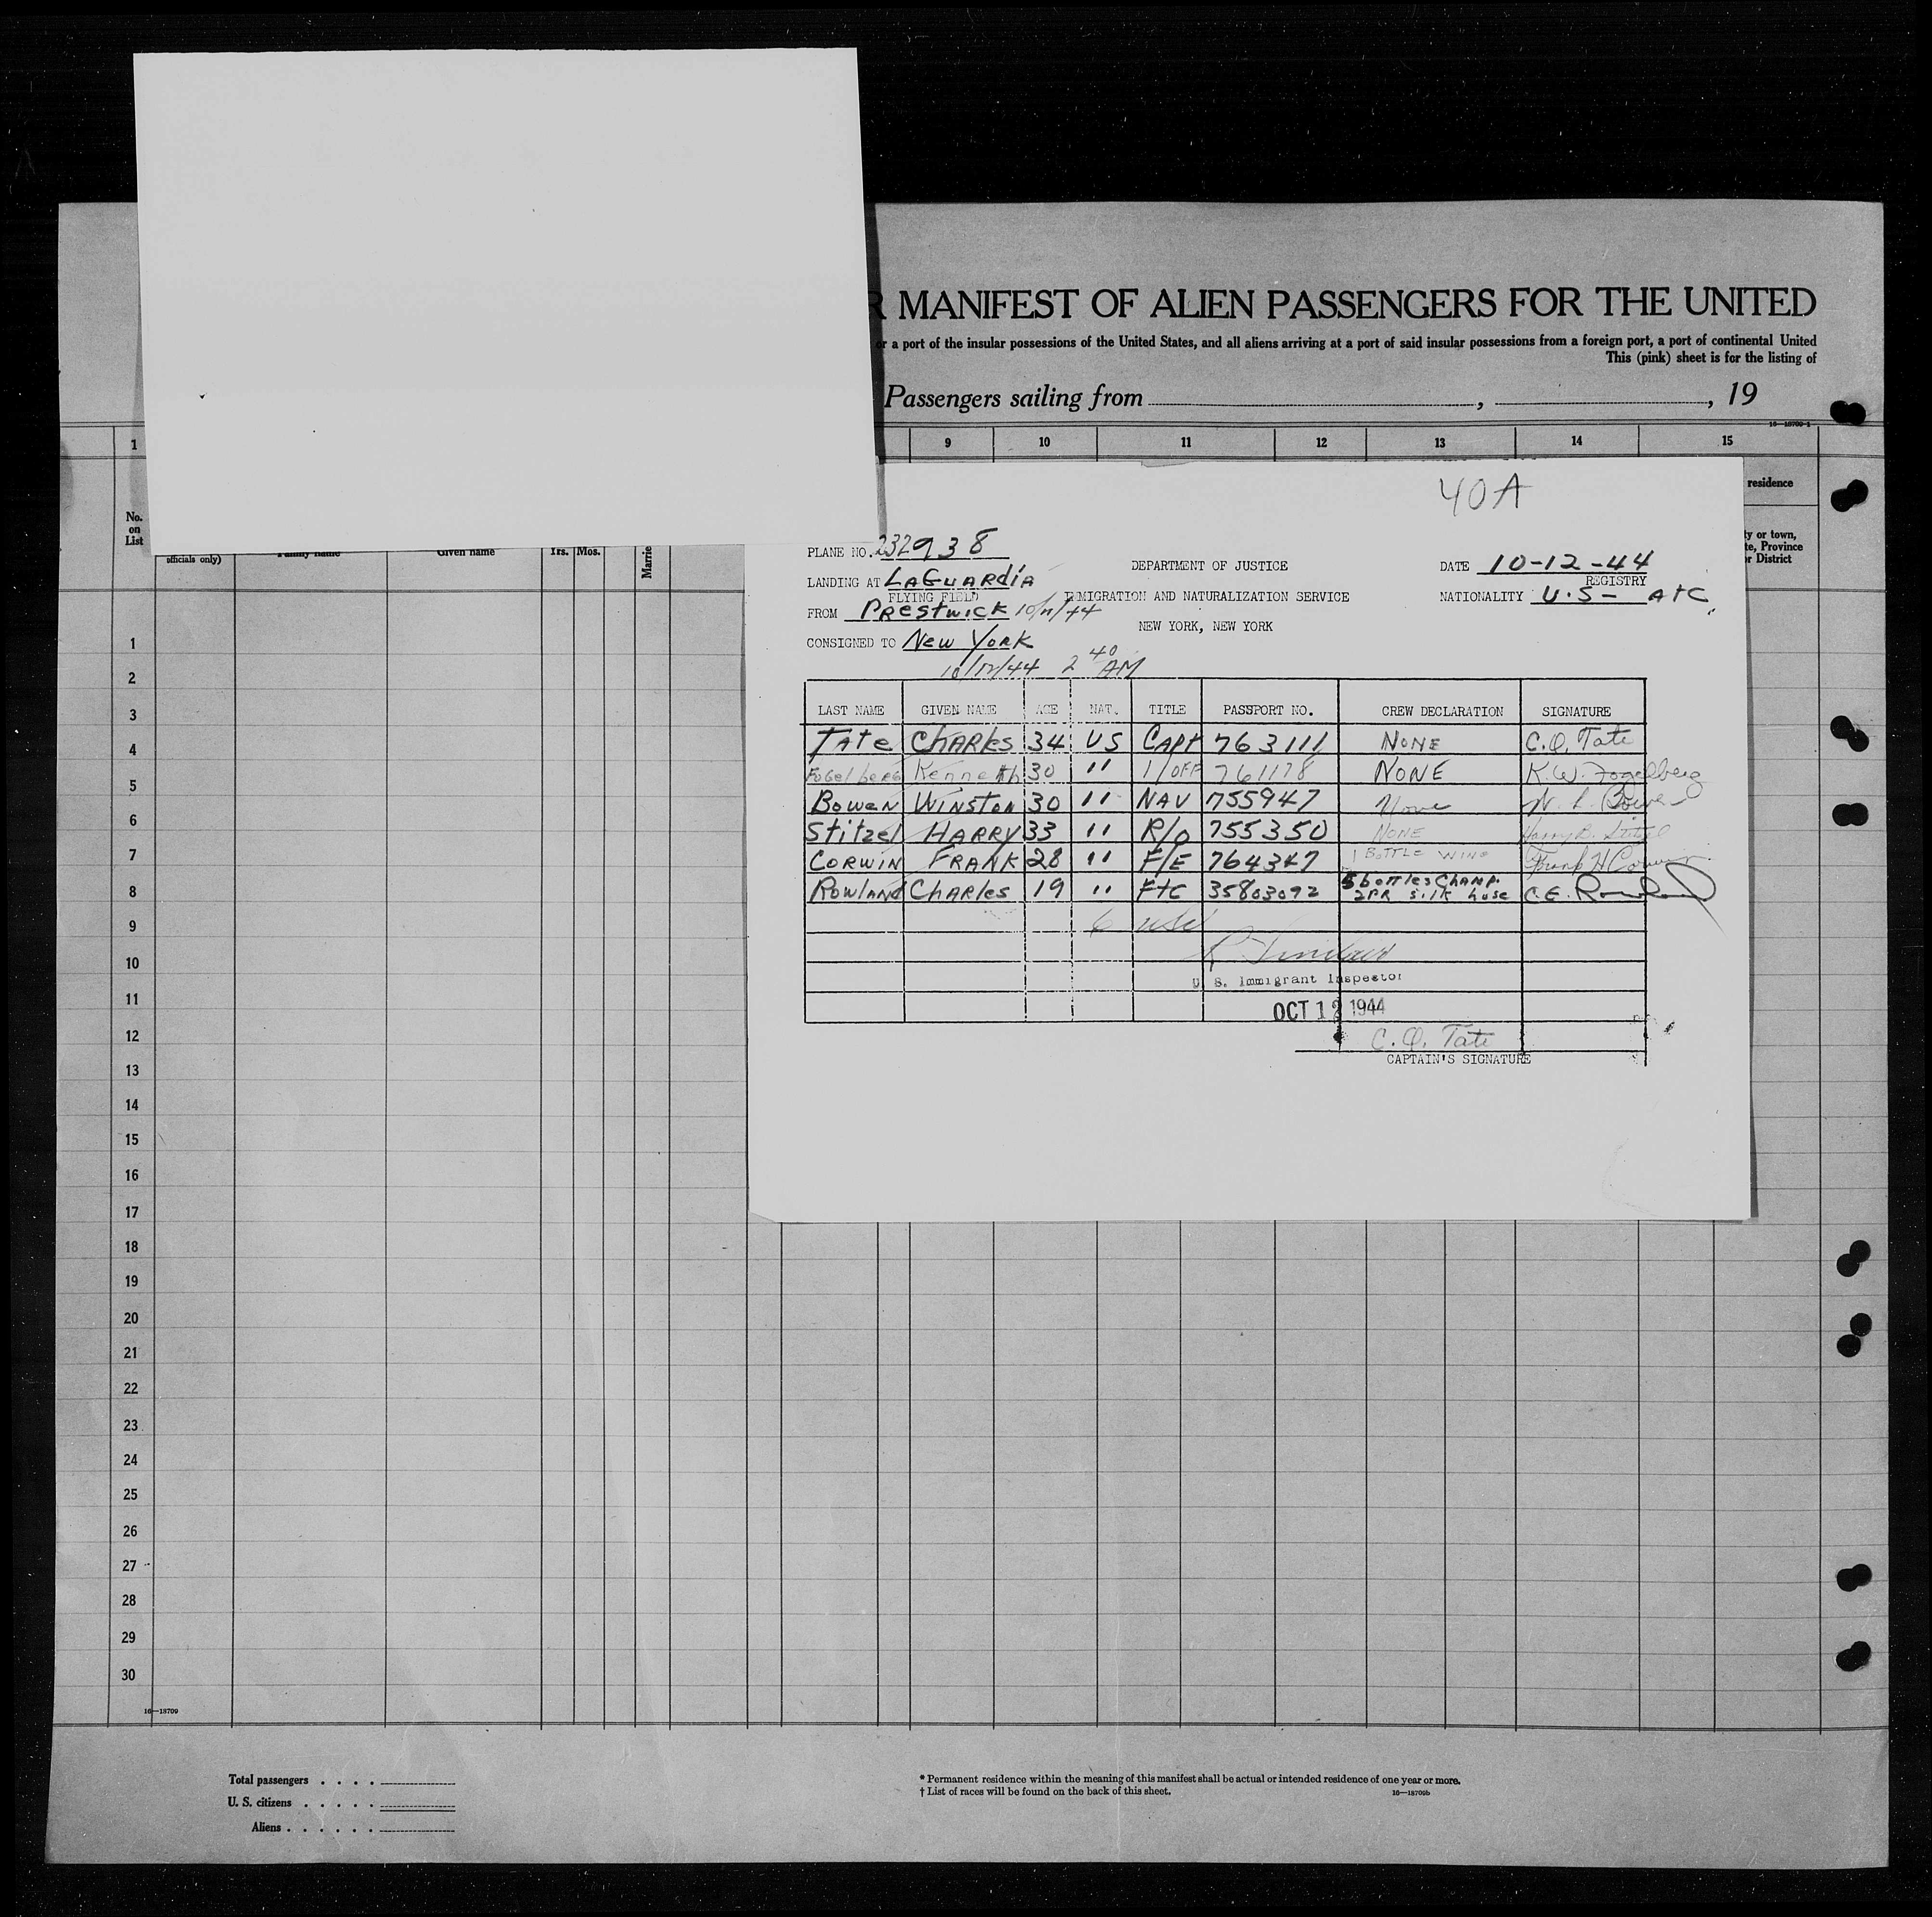 MANIFEST OF ALIEN PASSENGERS FOR THE UNITED
or a port of the insular possessions of the United States, and all aliens arriving at a port of said insular possessions from a foreign port, a port of continental United
This (pink) sheet is for the listing of
Passengers sailing from , , 19
16—18709-1
1 9 10 11 12 13 14 15
residence
No. on List
officials only) Family name Given name Yrs. Mos. Marrie
ty or town,
te, Province
r District
40A
PLANE NO. 232938
LANDING AT LAGUARDIA
FLYING FIELD
FROM PRESTWICK 10/11/44
CONSIGNED TO NEW YORK
10/12/44 2 40 AM
DEPARTMENT OF JUSTICE
IMMIGRATION AND NATURALIZATION SERVICE
NEW YORK, NEW YORK
DATE 10-12-44
REGISTRY
NATIONALITY U.S- ATC
LAST NAME GIVEN NAME AGE NAT. TITLE PASSPORT NO. CREW DECLARATION SIGNATURE
TATE CHARLES 34 US CAPT 763111 NONE C.O. Tate
Fogelberg Kenneth 30 " 1/OFF 761178 NONE K.W. Fogelberg
BOWEN WINSTON 30 " NAV 755947 None
STITZEL HARRY 33 " R/O 755350 NONE Harry B. Stitzel
CORWIN FRANK 28 " F/E 764347 1 BOTTLE WINE Frank H Corwin
ROWLAND CHARLES 19 " FTC 35803092 5 bottles CHAMP. 2PR silk hose C.E. Rowland
6 USC
U. S. Immigrant Inspector
OCT 12 1944
C.O. Tate
CAPTAIN'S SIGNATURE
1
2
3
4
5
6
7
8
9
10
11
12
13
14
15
16
17
18
19
20
21
22
23
24
25
26
27
28
29
30
16—18709
Total passengers . . . .
U. S. citizens . . . . .
Aliens . . . . . .
* Permanent residence within the meaning of this manifest shall be actual or intended residence of one year or more.
† List of races will be found on the back of this sheet.
16—18709b